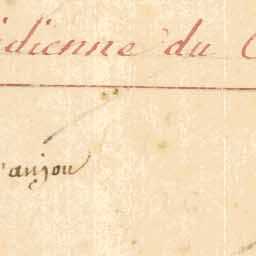 idienne du
anjou